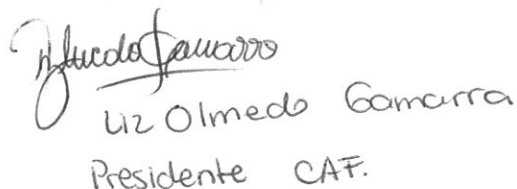 Liz Olmedo Gamarra
Presidente CAF.